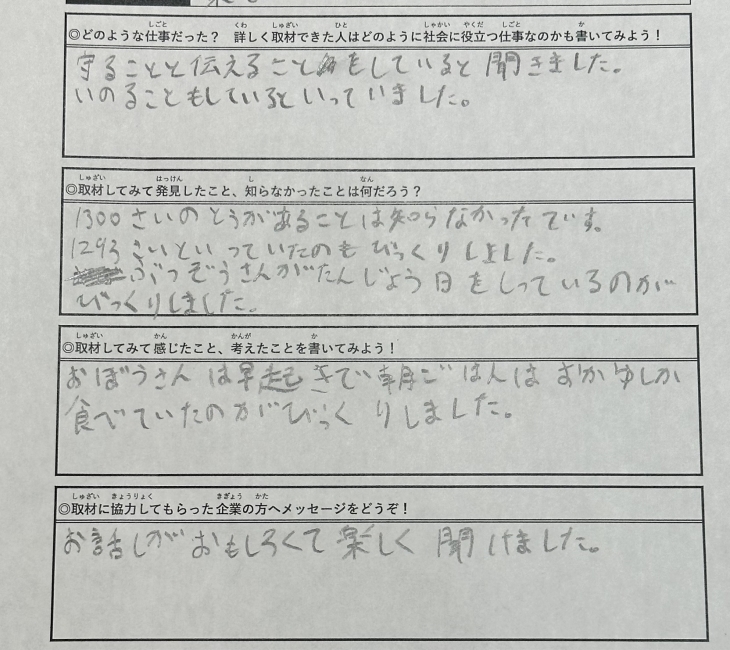 ◎どのような仕事だった？ 詳しく取材できた人はどのように社会に役立つ仕事なのかも書いてみよう！
守ることと伝えることをしていると聞きました。
いのることもしているといっていました。
◎取材してみて発見したこと、知らなかったことは何だろう？
1300さいのとうがあることは知らなかったです。
1293さいといっていたのもびっくりしました。
ぶつぞうさんがたんじょう日をしっているのが
びっくりしました。
◎取材してみて感じたこと、考えたことを書いてみよう！
おぼうさんは早起きで朝ごはんはおかゆしか
食べていたのがびっくりしました。
◎取材に協力してもらった企業の方へメッセージをどうぞ！
お話しがおもしろくて楽しく聞けました。